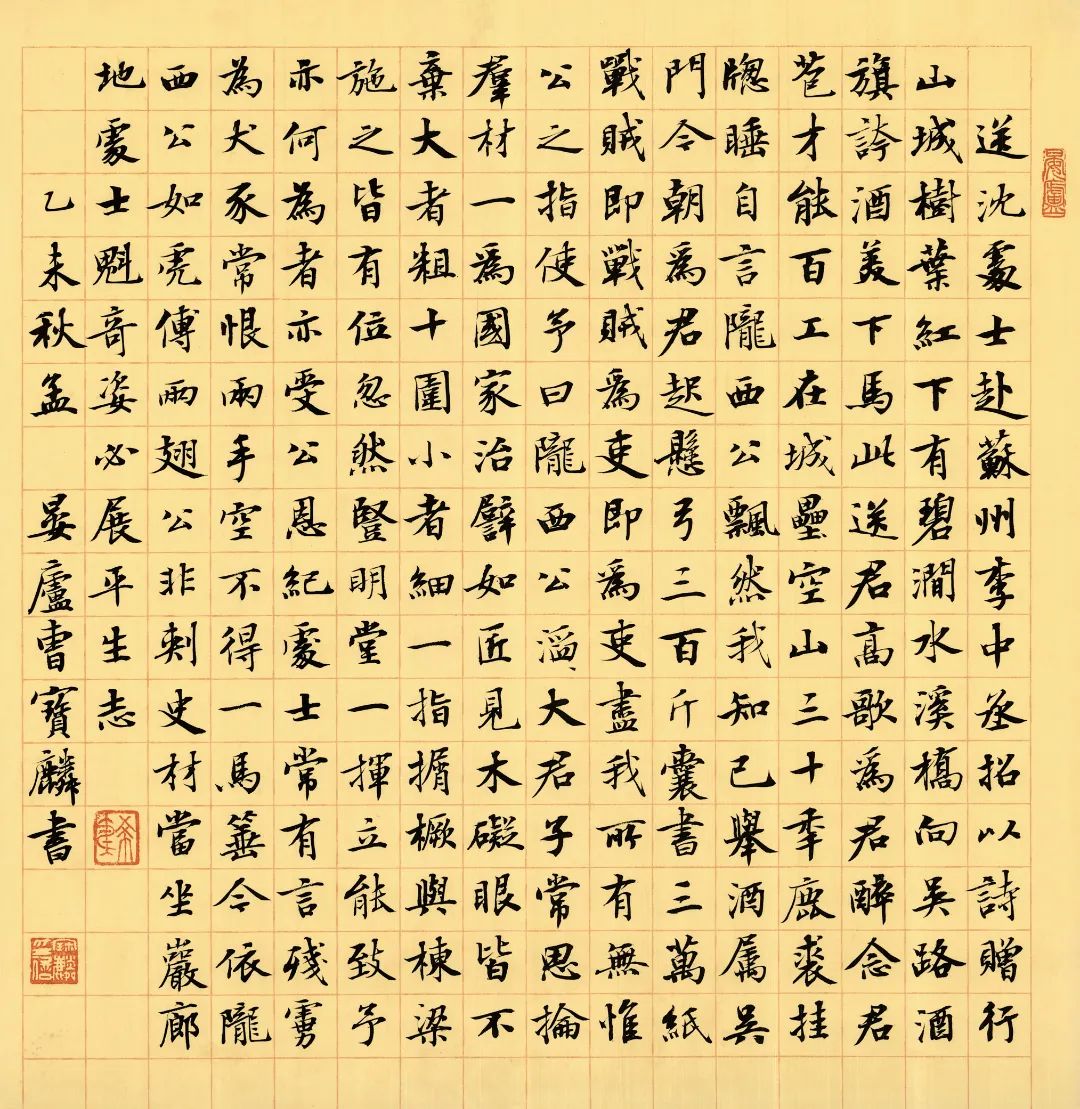 送沈處士赴蘇州李中丞招以詩贈行
山城樹葉紅下有碧澗水溪橋向吳路酒
旗誇酒美下馬此送君高歌爲君醉念君
苞才能百工在城壘空山三十季鹿裘挂
牕睡自言隴西公飄然我知己舉酒属吳
門令朝爲君起懸弓三百斤囊書三萬紙
戰賊即戰賊爲吏即爲吏盡我所有無惟
公之指使予曰隴西公滔〻大君子常思掄
羣材一爲國家治譬如匠見木礙眼皆不
棄大者粗十圍小者細一指榍橛與棟梁
施之皆有位忽然豎明堂一揮立能致予
亦何為者亦受公恩紀處士常有言殘虜
為犬豕常恨兩手空不得一馬箠今依隴
西公如虎傅兩翅公非刺史材當坐巖廊
地處士魁奇姿必展平生志
乙未秋孟 晏廬曹寶麟書